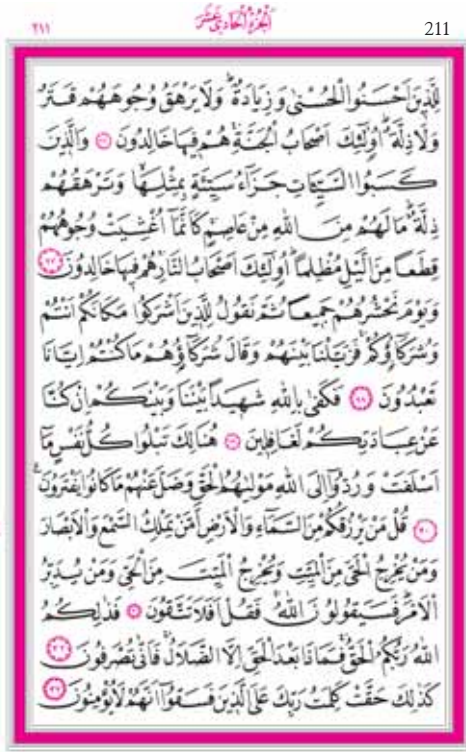 ٢١١ اَلْجُزْءُ الْحَادِي عَشَرَ 211
لِلَّذٖينَ اَحْسَنُوا الْحُسْنٰى وَزِيَادَةٌ وَلَا يَرْهَقُ وُجُوهَهُمْ قَتَرٌ
وَلَا ذِلَّةٌ اُو۬لٰٓئِكَ اَصْحَابُ الْجَنَّةِ هُمْ فٖيهَا خَالِدُونَ ﴿٢٦﴾ وَالَّذٖينَ
كَسَبُوا السَّيِّـَٔاتِ جَزَٓاءُ سَيِّئَةٍ بِمِثْلِهَا وَتَرْهَقُهُمْ
ذِلَّةٌ مَا لَهُمْ مِنَ اللّٰهِ مِنْ عَاصِمٍ كَاَنَّمَٓا اُغْشِيَتْ وُجُوهُهُمْ
قِطَعًا مِنَ الَّيْلِ مُظْلِمًا اُو۬لٰٓئِكَ اَصْحَابُ النَّارِ هُمْ فٖيهَا خَالِدُونَ ﴿٢٧﴾
وَيَوْمَ نَحْشُرُهُمْ جَمٖيعًا ثُمَّ نَقُولُ لِلَّذٖينَ اَشْرَكُوا مَكَانَكُمْ اَنْتُمْ
وَشُرَكَٓاؤُ۬كُمْ فَزَيَّلْنَا بَيْنَهُمْ وَقَالَ شُرَكَٓاؤُ۬هُمْ مَا كُنْتُمْ اِيَّانَا
تَعْبُدُونَ ﴿٢٨﴾ فَكَفٰى بِاللّٰهِ شَهٖيدًا بَيْنَنَا وَبَيْنَكُمْ اِنْ كُنَّا
عَنْ عِبَادَتِكُمْ لَغَافِلٖينَ ﴿٢٩﴾ هُنَالِكَ تَبْلُوا كُلُّ نَفْسٍ مَٓا
اَسْلَفَتْ وَرُدُّٓوا اِلَى اللّٰهِ مَوْلٰيهُمُ الْحَقِّ وَضَلَّ عَنْهُمْ مَا كَانُوا يَفْتَرُونَ
﴿٣٠﴾ قُلْ مَنْ يَرْزُقُكُمْ مِنَ السَّمَٓاءِ وَالْاَرْضِ اَمَّنْ يَمْلِكُ السَّمْعَ وَالْاَبْصَارَ
وَمَنْ يُخْرِجُ الْحَيَّ مِنَ الْمَيِّتِ وَيُخْرِجُ الْمَيِّتَ مِنَ الْحَيِّ وَمَنْ يُدَبِّرُ
الْاَمْرَ فَسَيَقُولُونَ اللّٰهُ فَقُلْ اَفَلَا تَتَّقُونَ ﴿٣١﴾ فَذٰلِكُمُ
اللّٰهُ رَبُّكُمُ الْحَقُّ فَمَاذَا بَعْدَ الْحَقِّ اِلَّا الضَّلَالُ فَاَنّٰى تُصْرَفُونَ ﴿٣٢﴾
كَذٰلِكَ حَقَّتْ كَلِمَتُ رَبِّكَ عَلَى الَّذٖينَ فَسَقُٓوا اَنَّهُمْ لَا يُؤْمِنُونَ ﴿٣٣﴾